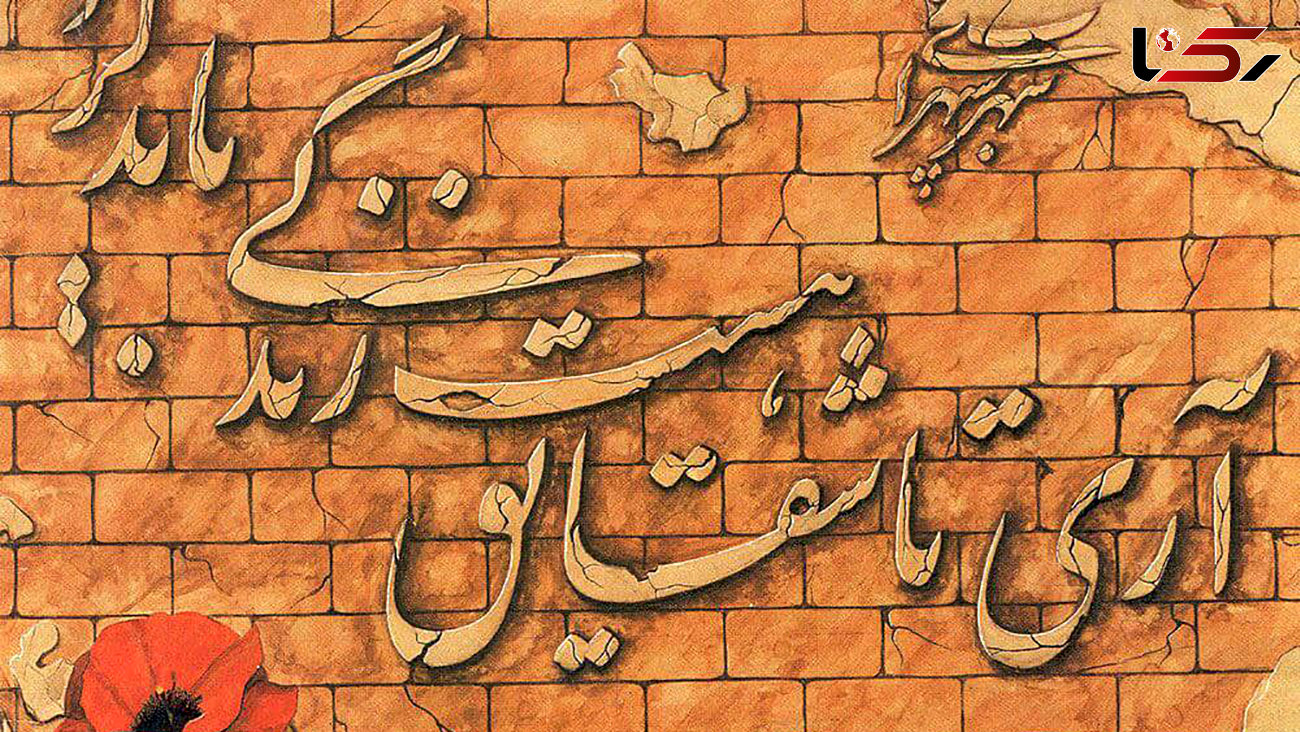 رکنا
سهراب سپهری
آری تا شقایق
هست زندگی
باید کرد